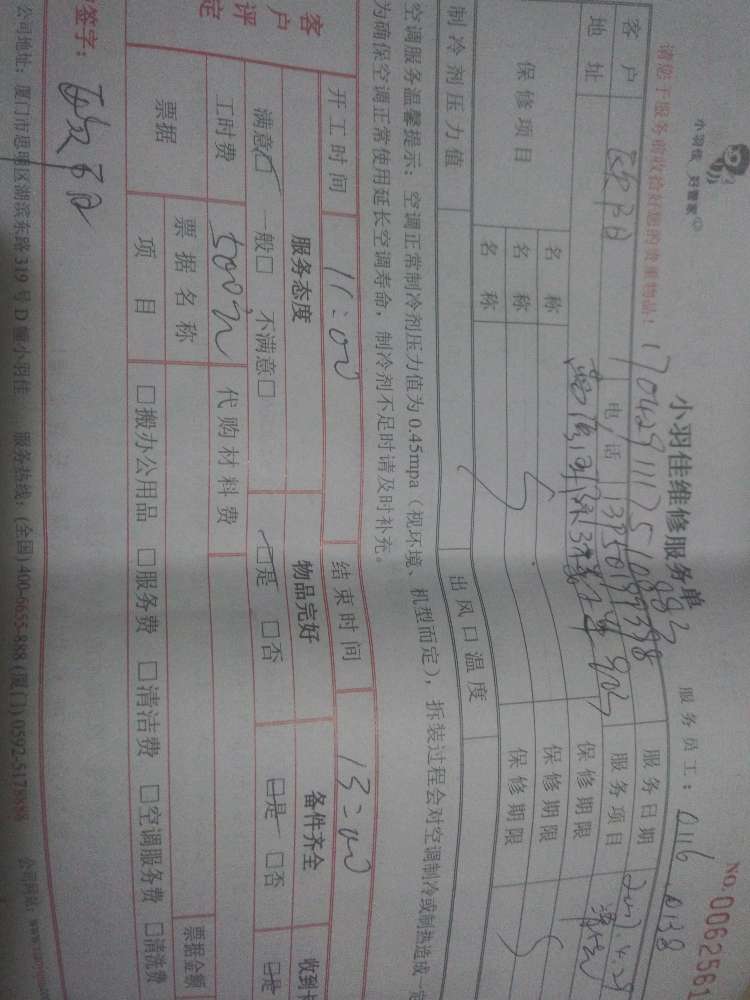 小羽佳 好管家
小羽佳维修服务单
NO.0062561
请您于服务前收好您的贵重物品!
服务员工: 0116 0138
17042911175108883
客户
电话
服务日期
地址
服务项目
保修项目
名称
保修期限
名称
保修期限
名称
保修期限
制冷剂压力值
出风口温度
空调服务温馨提示: 空调正常制冷剂压力值为0.45mpa (视环境、机型而定), 拆装过程会对空调制冷或制热造成一定
为确保空调正常使用延长空调寿命, 制冷剂不足时请及时补充。
开工时间 11:00 结束时间 13:00
客户评定
服务态度 物品完好 备件齐全 收到
满意☑ 一般□ 不满意□ ☑是 □否 □是 □否 □是
工时费 500元 代购材料费
票据
票据名称
票据金额
项目 □搬办公用品 □服务费 □清洁费 □空调服务费 □清洗费
签字:
公司地址: 厦门市思明区湖滨东路319号D幢小羽佳 服务热线: (全国)400-6655-888 (厦门)0592-5178888 公司网站: